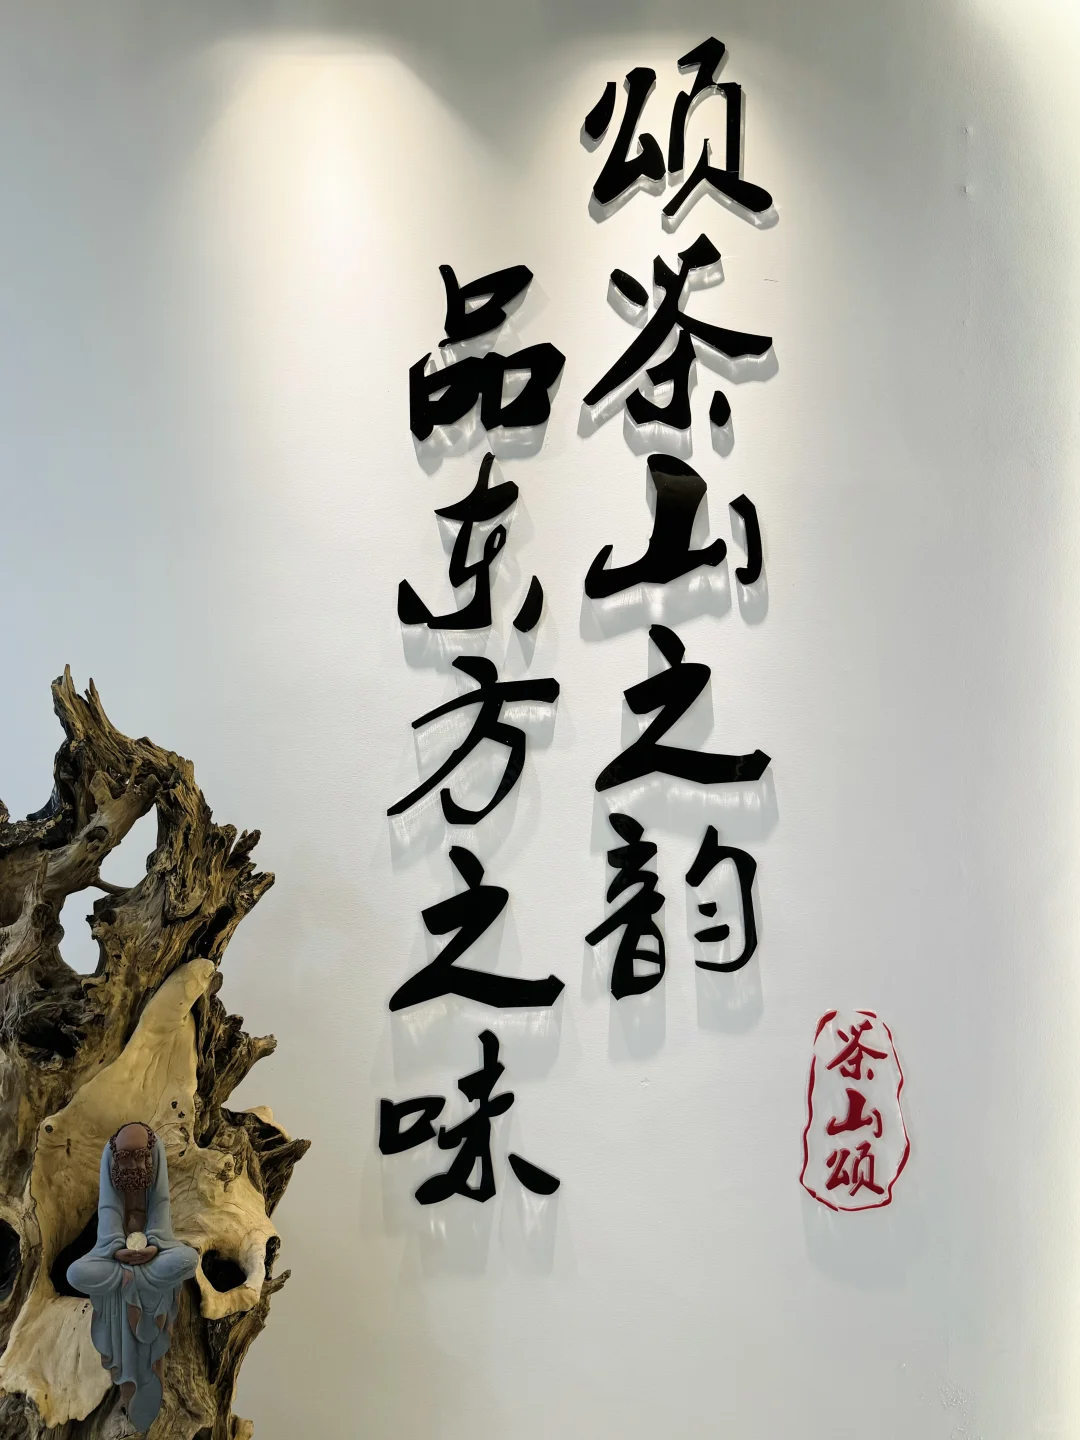 颂茶山之韵
品东方之味
茶山颂